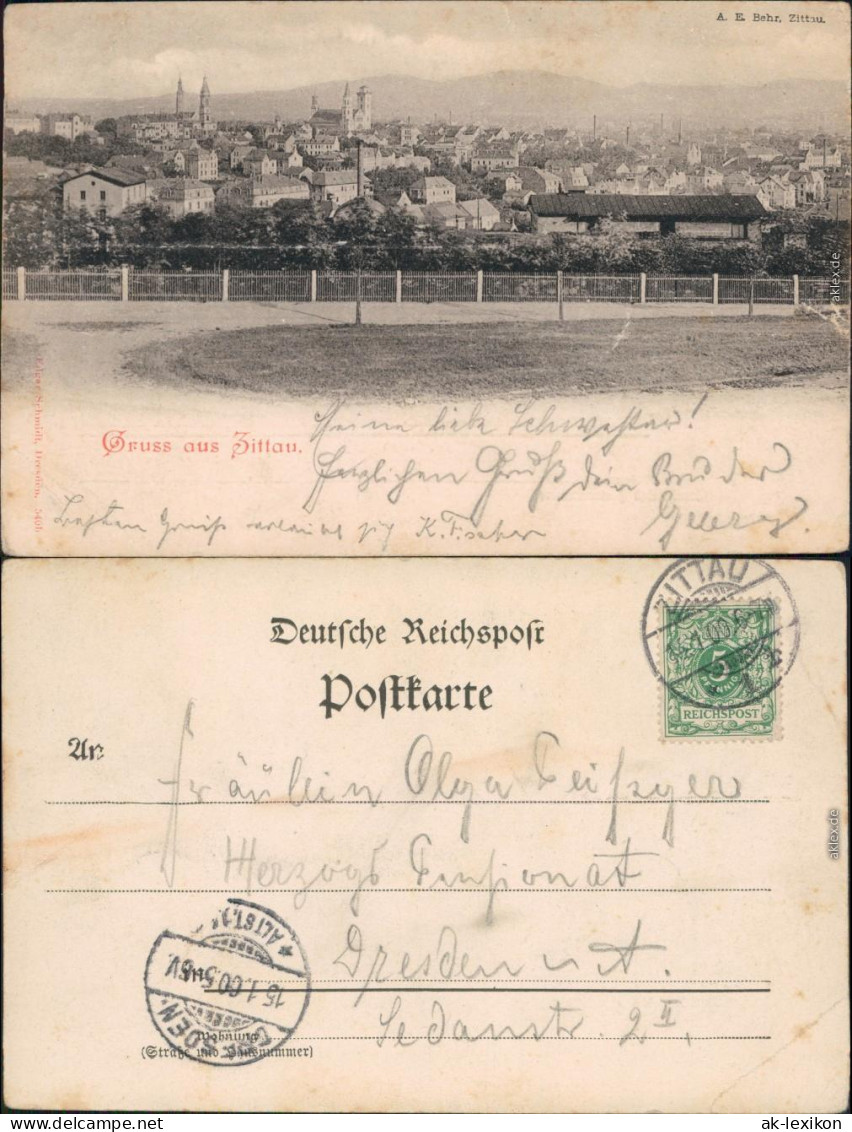 A. E. Behr, Zittau.
Schmidt, Dresden. 5401
Gruss aus Zittau.
Meine liebe Schwester!
herzlichen Gruß dein Bruder
Georg.
Besten Gruß erlaubt sich K. Fischer
aklex.de
Deutsche Reichspost
Postkarte
ZITTAU
5
REICHSPOST
An
Fräulein Olga
Herzogs Pensionat
Dresden
Sedanstr. 2 II,
ALTST. 1
15.1.00.5
DRESDEN
Wohnung
(Straße und Hausnummer)
aklex.de
www.ak-lexikon.de